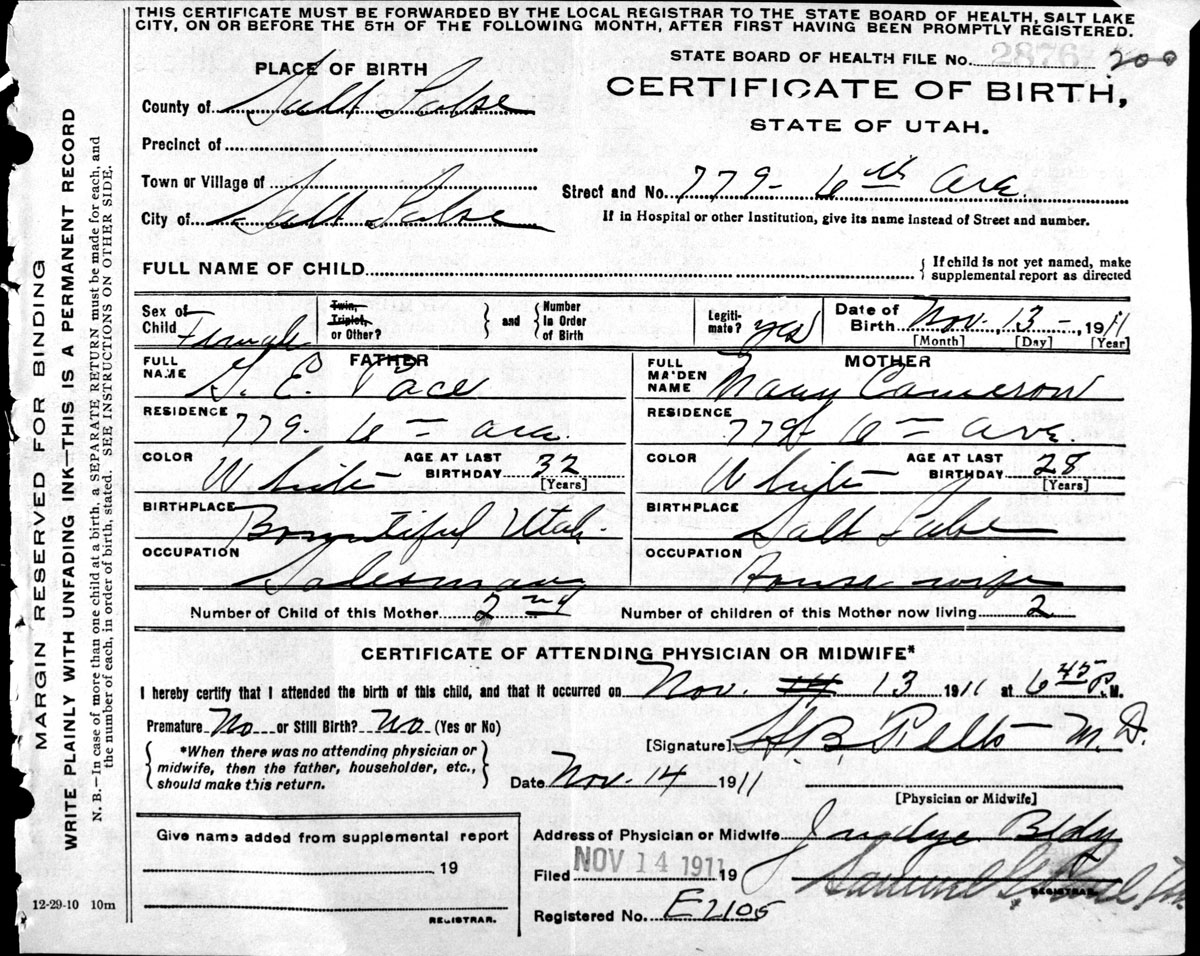 THIS CERTIFICATE MUST BE FORWARDED BY THE LOCAL REGISTRAR TO THE STATE BOARD OF HEALTH, SALT LAKE
CITY, ON OR BEFORE THE 5TH OF THE FOLLOWING MONTH, AFTER FIRST HAVING BEEN PROMPTLY REGISTERED.
STATE BOARD OF HEALTH FILE No. 2876 200
PLACE OF BIRTH
CERTIFICATE OF BIRTH,
STATE OF UTAH.
County of Salt Lake
Precinct of
Town or Village of
Street and No. 779- 6th Ave
City of Salt Lake
If in Hospital or other Institution, give its name instead of Street and number.
FULL NAME OF CHILD
{ If child is not yet named, make
supplemental report as directed
Sex of Child Female
Twin, Triplet, or Other? } and { Number in Order of Birth
Legiti-mate? yes
Date of Birth Nov. 13 -, 1911
[Month] [Day] [Year]
FATHER
FULL NAME E. Pace
RESIDENCE 779. 6th Ave.
COLOR White
AGE AT LAST BIRTHDAY 32
[Years]
BIRTHPLACE Bountiful Utah.
OCCUPATION Salesman
MOTHER
FULL MAIDEN NAME Mary Cameron
RESIDENCE 779 6th Ave.
COLOR White
AGE AT LAST BIRTHDAY 28
[Years]
BIRTHPLACE Salt Lake
OCCUPATION House wife
Number of Child of this Mother 2nd
Number of children of this Mother now living 2
CERTIFICATE OF ATTENDING PHYSICIAN OR MIDWIFE*
I hereby certify that I attended the birth of this child, and that it occurred on Nov. 14 13 1911 at 6 45 P. M.
Premature No or Still Birth? No (Yes or No)
{ *When there was no attending physician or
midwife, then the father, householder, etc.,
should make this return. }
[Signature] M.D.
Date Nov. 14 1911
[Physician or Midwife]
Give name added from supplemental report
19
REGISTRAR.
Address of Physician or Midwife Judge Bldg
Filed NOV 14 1911 19
Samuel G.
REGISTRAR.
Registered No. E2105
12-29-10 10m
MARGIN RESERVED FOR BINDING
WRITE PLAINLY WITH UNFADING INK—THIS IS A PERMANENT RECORD
N. B.—In case of more than one child at a birth, a SEPARATE RETURN must be made for each, and
the number of each, in order of birth, stated. SEE INSTRUCTIONS ON OTHER SIDE.